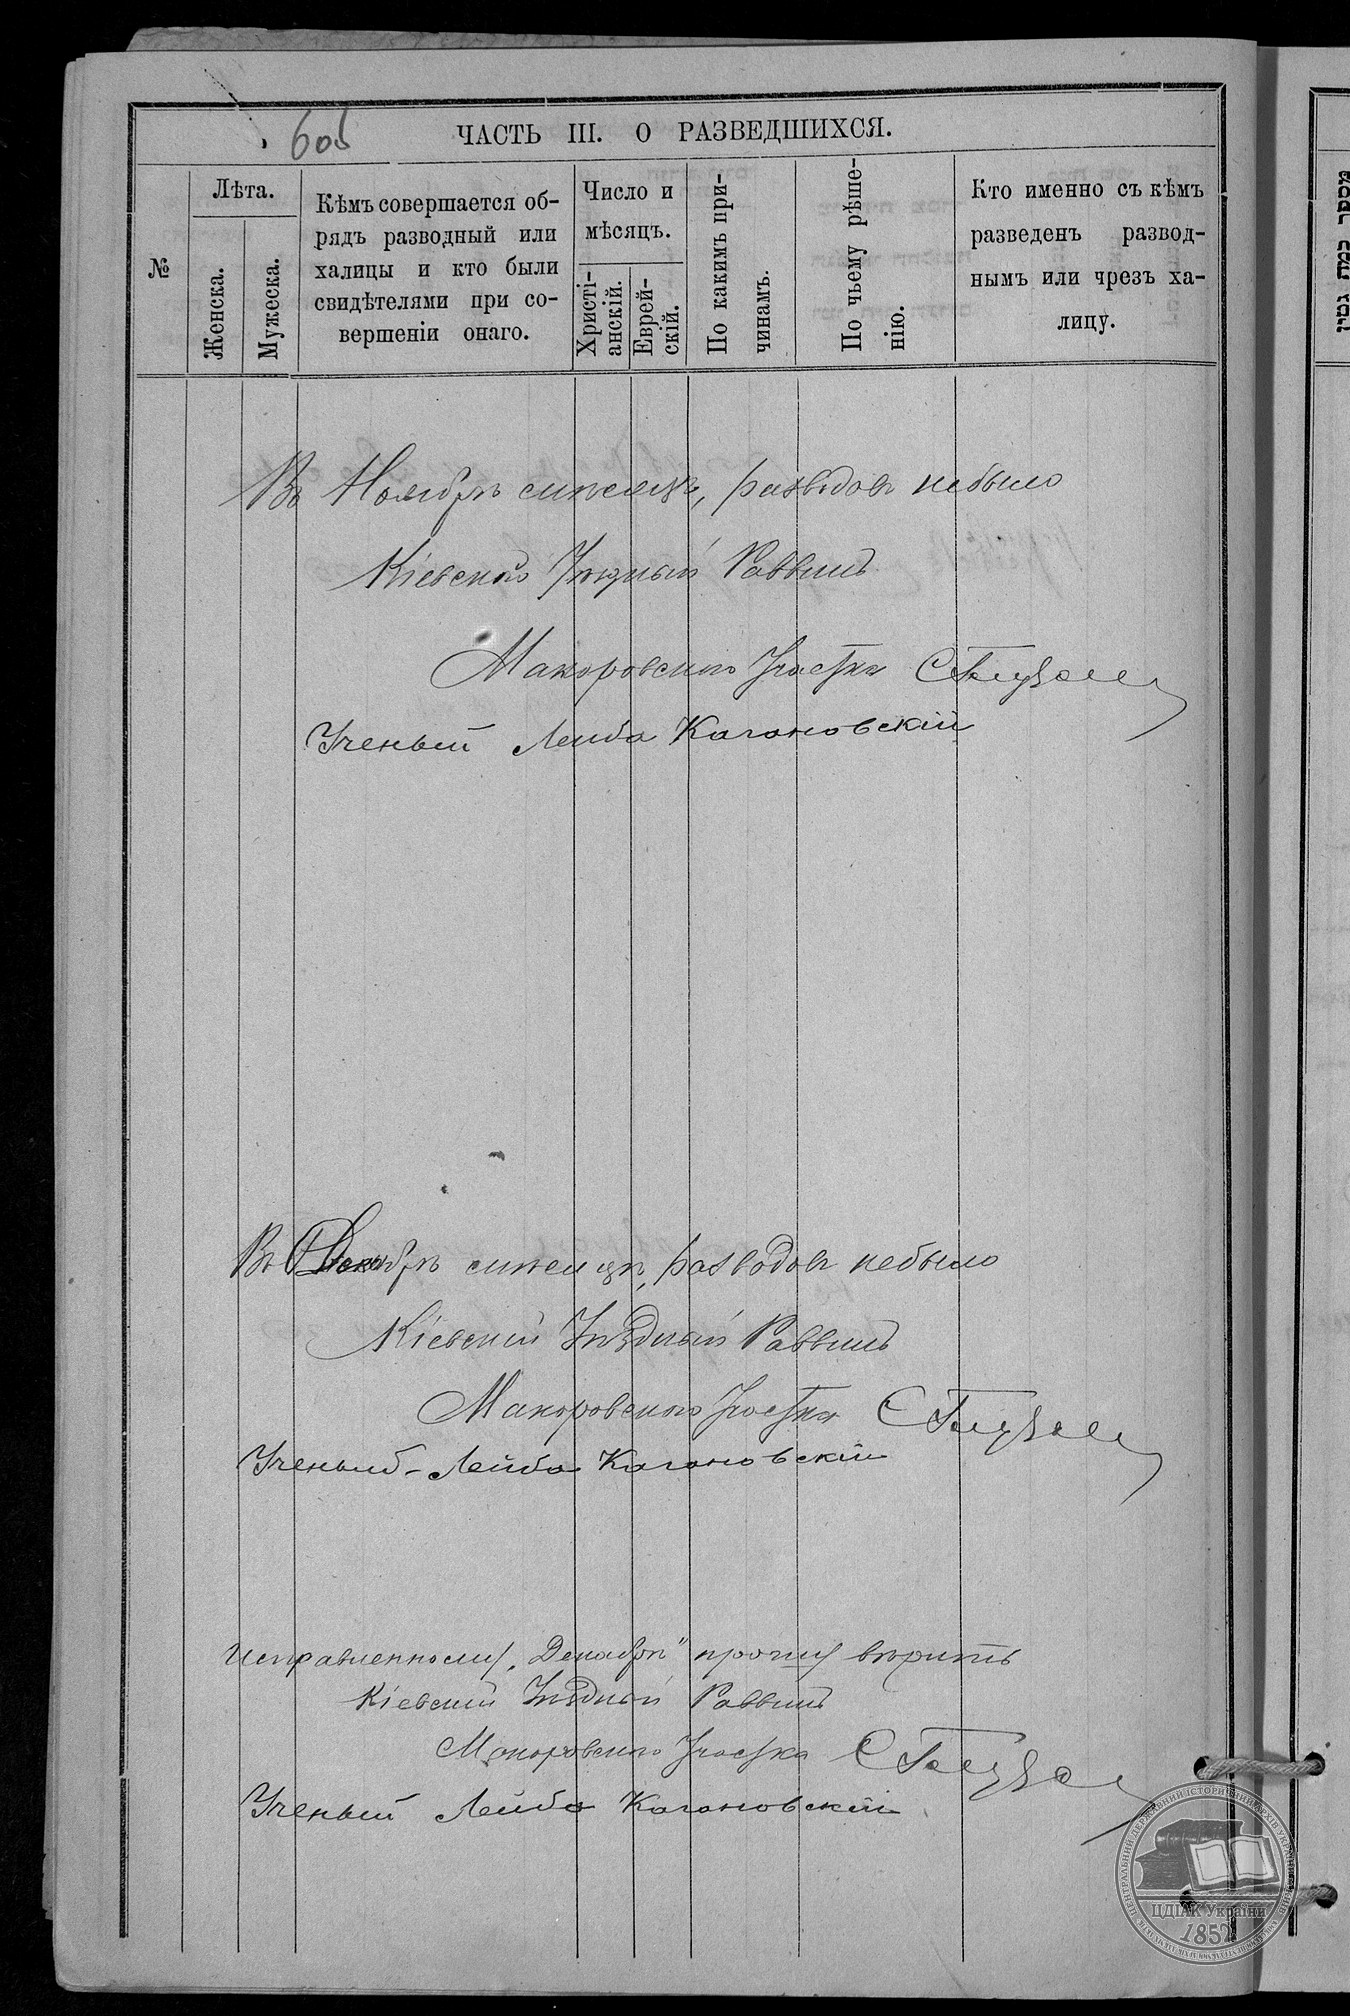 605
ЧАСТЬ III. О РАЗВЕДШИХСЯ.
№
Лѣта.
Женска.
Мужеска.
Кѣмъ совершается об-
рядъ разводный или
халицы и кто были
свидѣтелями при со-
вершеніи онаго.
Число и
мѣсяцъ.
Христі-
анскій.
Еврей-
скій.
По какимъ при-
чинамъ.
По чьему рѣше-
нію.
Кто именно съ кѣмъ
разведенъ развод-
нымъ или чрезъ ха-
лицу.
Въ Ноябрѣ мѣсяцѣ, разводовъ небыло
Кіевскій Уѣздный Раввинъ
Макаровскаго Участка
Ученый Лейба Кагановскій
Въ Декабрѣ мѣсяцѣ, разводовъ небыло
Кіевскій Уѣздный Раввинъ
Макаровскаго Участка
Ученый - Лейба Кагановскій
Исправленному „Декабрѣ" прошу вѣрить
Кіевскій Уѣздный Раввинъ
Макаровскаго Участка
Ученый Лейба Кагановскій
ЦЕНТРАЛЬНИЙ ДЕРЖАВНИЙ ІСТОРИЧНИЙ АРХІВ УКРАЇНИ
ЦДІАК України
1852